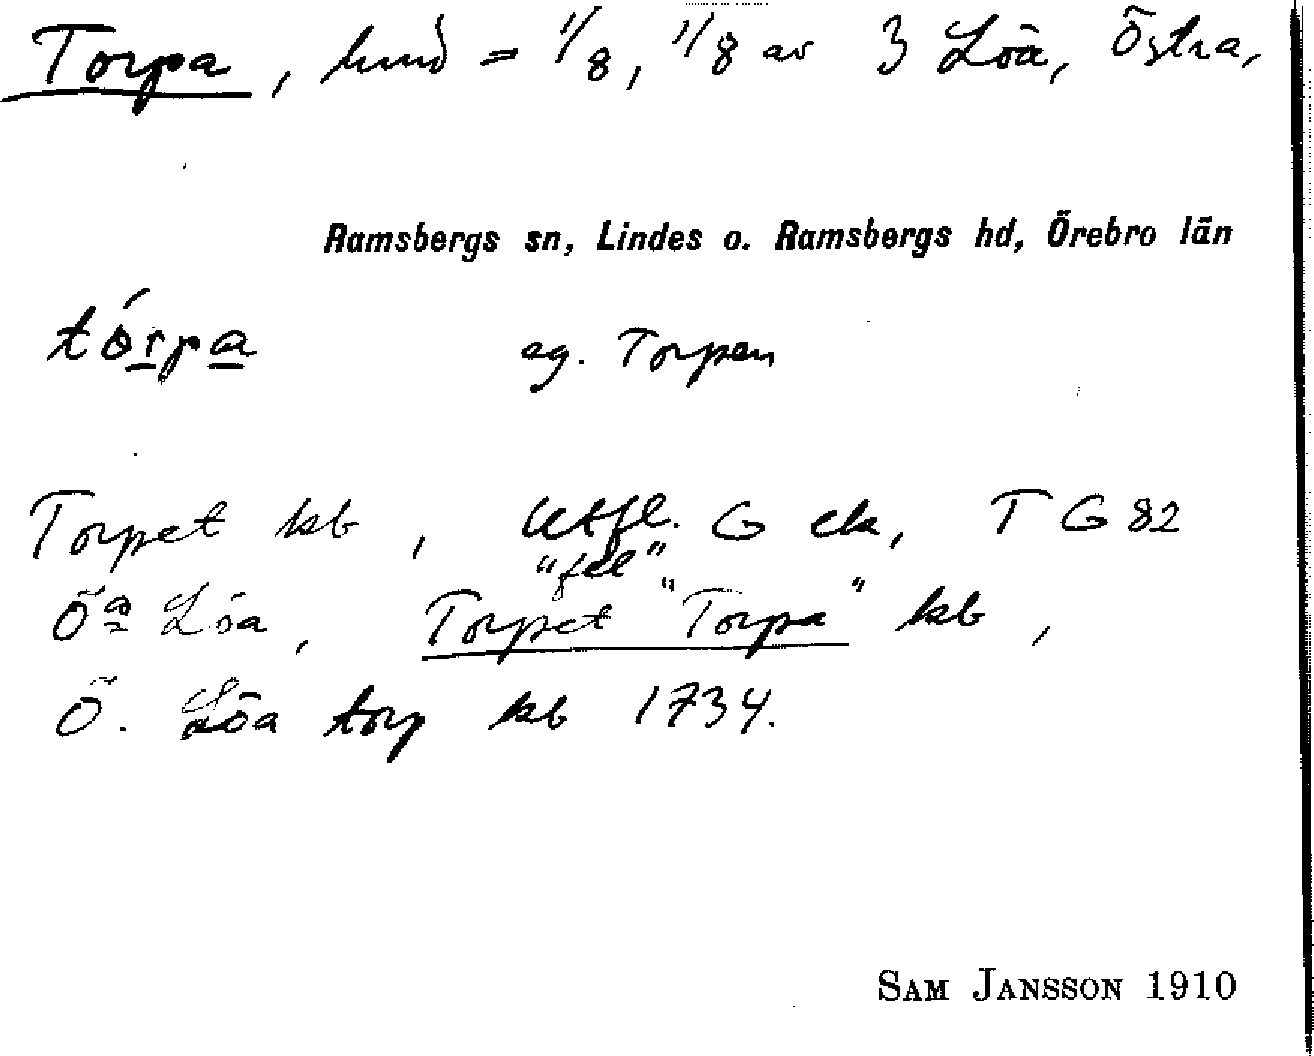 Torpa, hmd = 1/8, 1/8 av 3 Löa, Östra,
Ramsbergs sn, Lindes o. Ramsbergs hd, Örebro län
tórpa eg. Torpen
Torpet kb, Utfl. G ek, T G 82
"fel"
Öa Löa, Torpet "Torpa" kb,
Ö. Löa torp kb 1734.
SAM JANSSON 1910